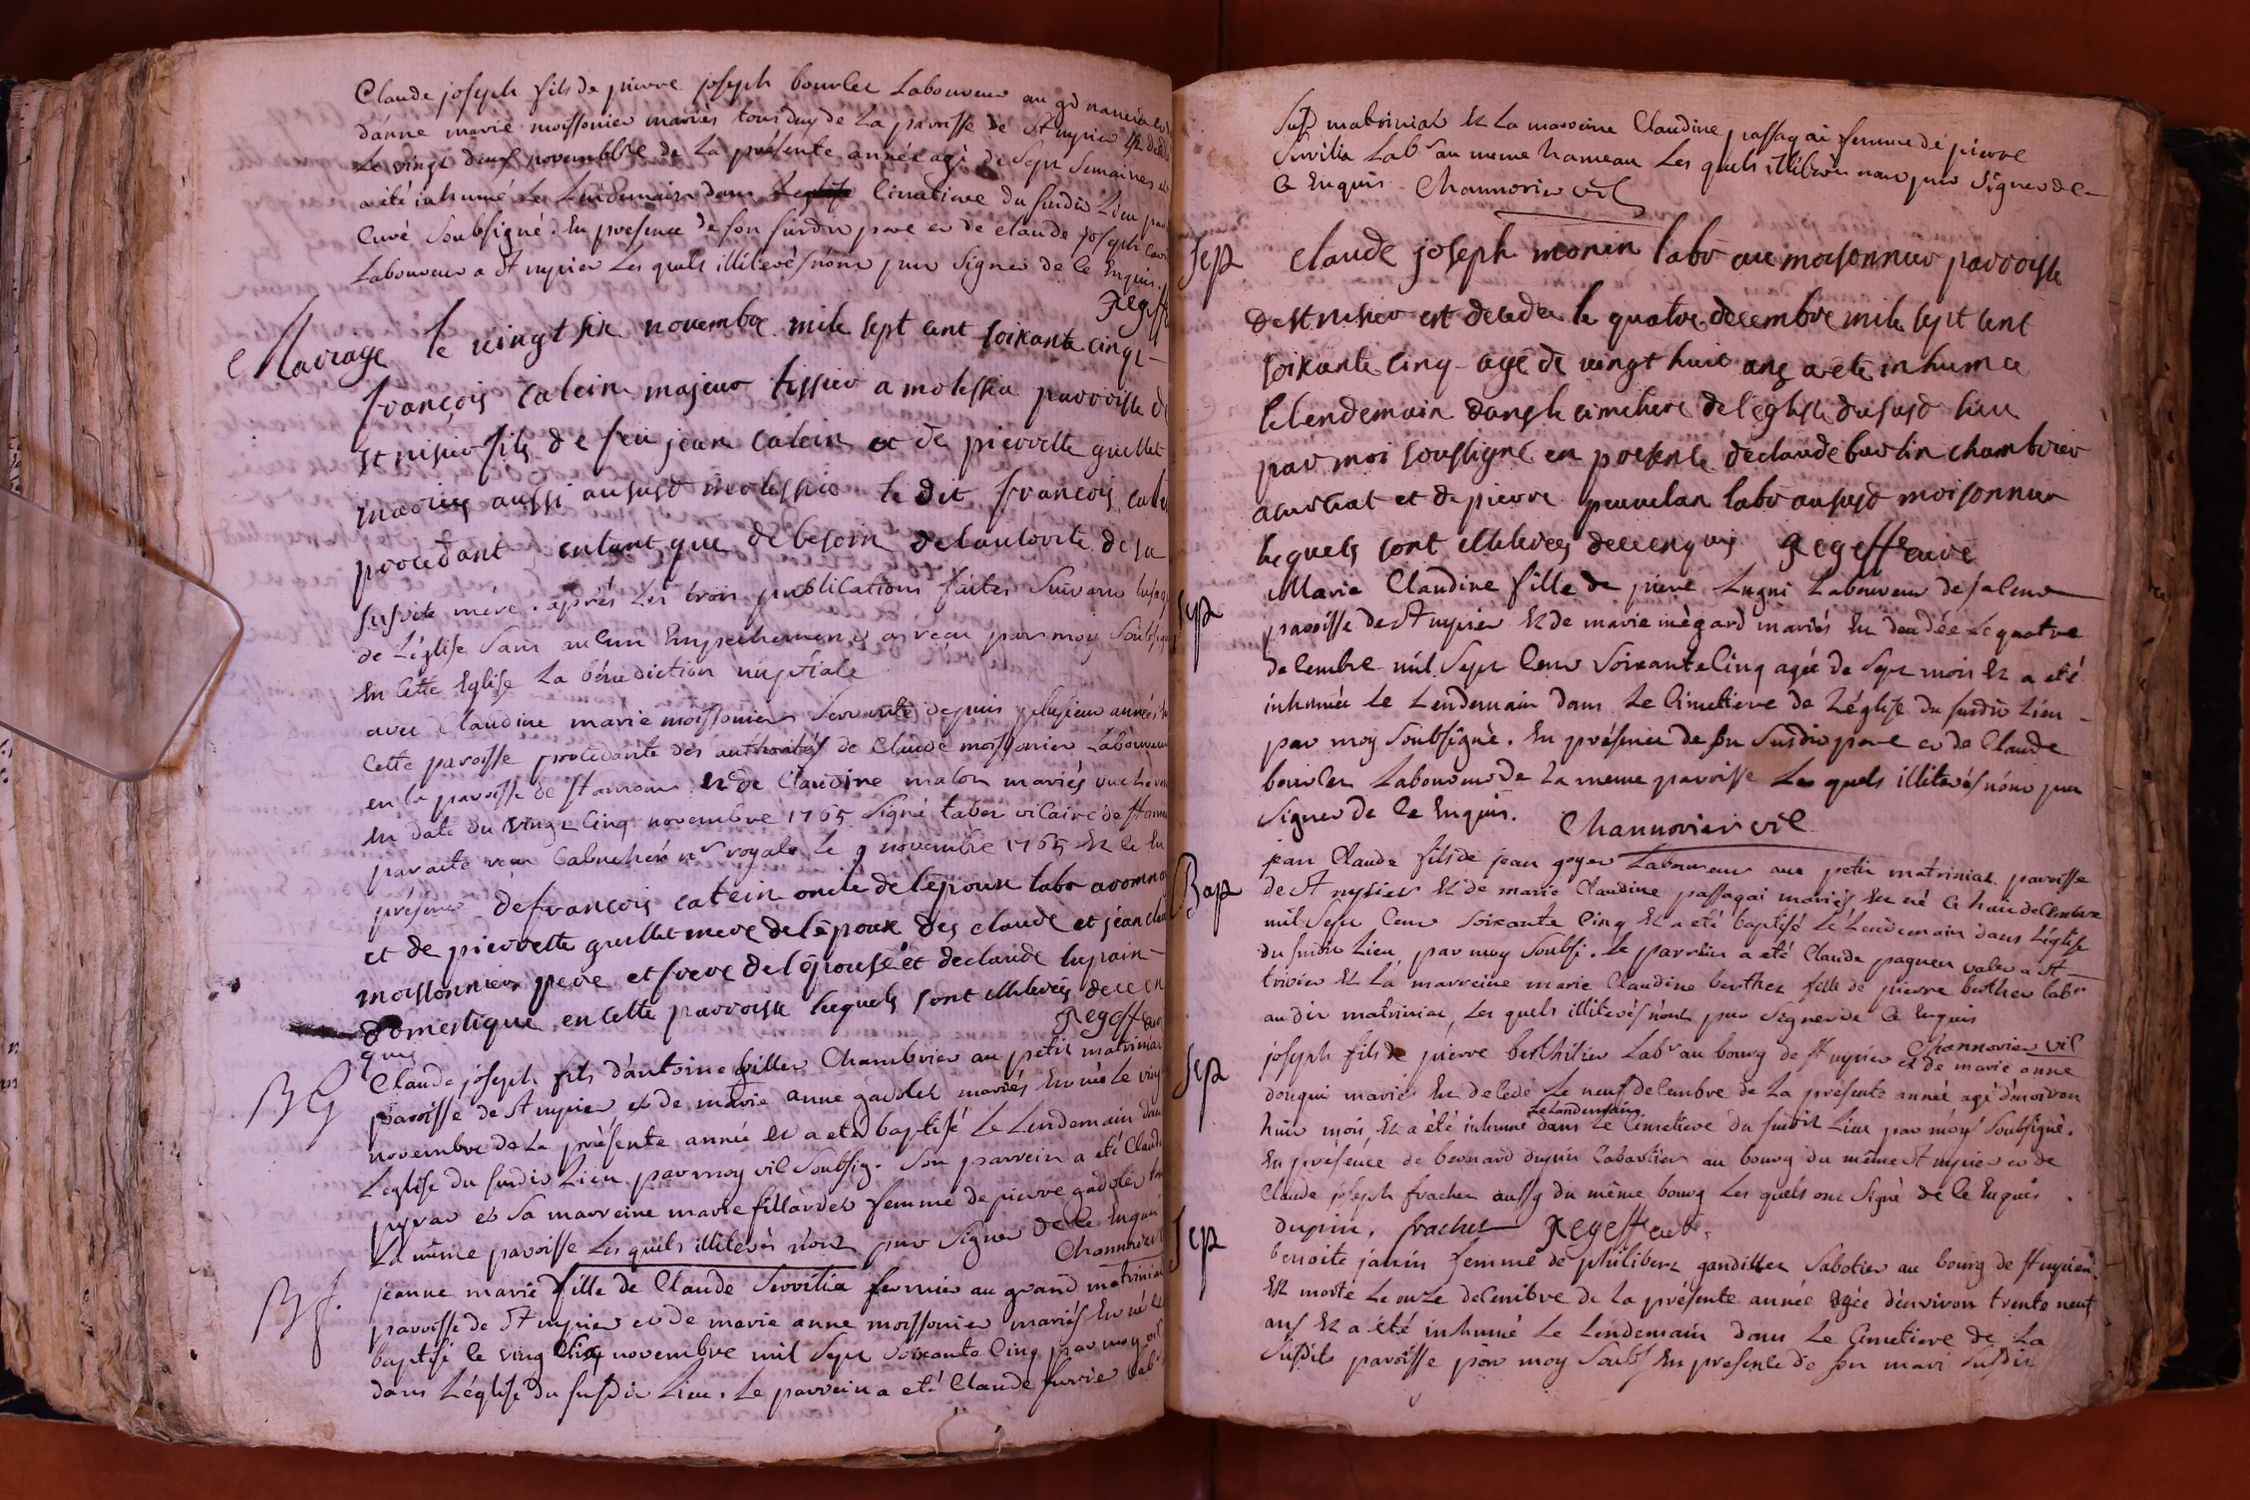 Claude joseph fils de pierre joseph bourlet Laboureur au gd
danne marie moissonier mariés tous duy de La paroisse de St nyzier
Le vingt deux novemblre de La présente année agé de Sept Semaines
a été inhumé Le Lendemain dans Cimatiere du susdit Lieu par
Curé Soubsigné. En presence de son susdit pere et de claude joseph
Laboureur a St nyzier Les quels illiterés nont pu Signer de ce Enquis.
Regeffe
Mariage le vingt six novembre mile sept cent soixante cinqt
françois catein majeur tissier a molissia parroisse de
st nisier fils de feu jean catein et de pierrette guillet
mariés aussi ausust molissia le dit françois
procedant entant que de besoin de lautorite de sa
susdite mére. aprés Les trois publications faites Suivant
de L'église Sans aucun Empechement a reçu par moy Soubsigné
En Cette Eglise La bénediction nuptiale
avec Claudine marie moissonier Servante depuis plusieur années
Cette paroisse procedante des authorités de Claude moissonier Laboureur
en la paroisse de et de Claudine maton mariés
En date du vingt Cinq novembre 1765 Signé tabey vicaire de
par acte reçu not royal le 9 novembre 1765 Et ce En
présence de françois catein oncle de l'epoux labr aromna
et de pierrette guillet mere de lépoux des claude et jean
moissonnier pere et frere de lépouse et declaude lupain
domestique en cette parroisse lesquels sont illeterés de ce en
quis Regeffe curé
BG Claude joseph fils d'antoine gillet Chambrier au petit matrinias
paroisse de St nyzier et de marie anne gadolet mariés Est né Le vingt
novembre de La présente année Et a eté baptisé Le Lendemain dans
L'eglise du susdit Lieu par moy vic Soubsig. Son parrein a eté Claude
et Sa marreine marie fillardet femme de pierre gadolet
La même paroisse Les quels illiterés n'ont pu Signer de Ce Enquis
Channorier
Bf. jeanne marie fille de Claude Servilia fermier au grand matrinias
paroisse de St nyzier et de marie anne moissonier mariés Est né Et
baptisé le vingt novembre mil Sept Soixante Cinq par moy vic
dans L'église du susdit Lieu. Le parrein a eté Claude
Susd matrinias Et La marreine Claudine passaqai femme de pierre
Servilia Labr au meme hameau Les quels illiterés nont pu Signer de
Ce Enquis Channorier vic
Sep Claude joseph monin labr au moisonnier parroisse
de st nisier est decedée le quatre decembre mile sept cent
soixante cinq agé de vingt huit ans a été inhumé
le lendemain dans le cimetiere de l'eglise du susd lieu
par moi soussigné en presence de claude burtin chambrier
et de pierre labr au susd moisonnier
lesquels sont illeterés de ce enquis Regeffe curé
Sep Marie Claudine fille de pierre Lugni Laboureur de
paroisse de St nyzier Et de marie mégard mariés Est decedée Le quatre
decembre mil Sept Cent Soixante Cinq agée de Sept mois Et a eté
inhumée Le Lendemain dans Le Cimetiere de L'église du susdit Lieu
par moy Soubsigné. En présence de Son Susdit pere et de Claude
bourlet Laboureur de La meme paroisse Les quels illiterés nont pu
Signer de Ce Enquis. Channorier vic
Bap jean Claude fils de jean goyet Laboureur au petit matrinias paroisse
de St nyzier Et de marie Claudine passaqai mariés Est né Ce huit decembre
mil Sept Cent Soixante Cinq Et a eté baptisé Le Lendemain dans L'église
du susdit Lieu par moy Soubsi. Le parrein a eté Claude paquet valet a St
trivier Et La marreine marie Claudine berthet fille de pierre berthet labr
au dit matrinias, Les quels illiterés n'ont pu Signer de Ce Enquis
Channorier vic
Sep joseph fils de pierre berthilier Labr au bourg de St nyzier et de marie anne
mariés Est decedé Le neuf decembre de La présente année agé d'environ
huit mois, Et a été inhumé Le Lendemain dans Le Cimetiere du susdit Lieu par moy Soubsigné.
En présence de bernard dupin Cabartier au bourg du même St nyzier et de
Claude joseph frachet aussy du même bourg Les quels ont Signé de Ce Enquis
dupin. frachet Regeffe curé.
Sep benoite janin femme de philibert gandillet Sabotier au bourg de St nyzier
Est morte Le onze decembre de La présente année agée d'environ trente neuf
ans Et a été inhumé Le Lendemain dans Le Cimetiere de La
Susdite paroisse par moy Soubs En presence de Son mari Susdit